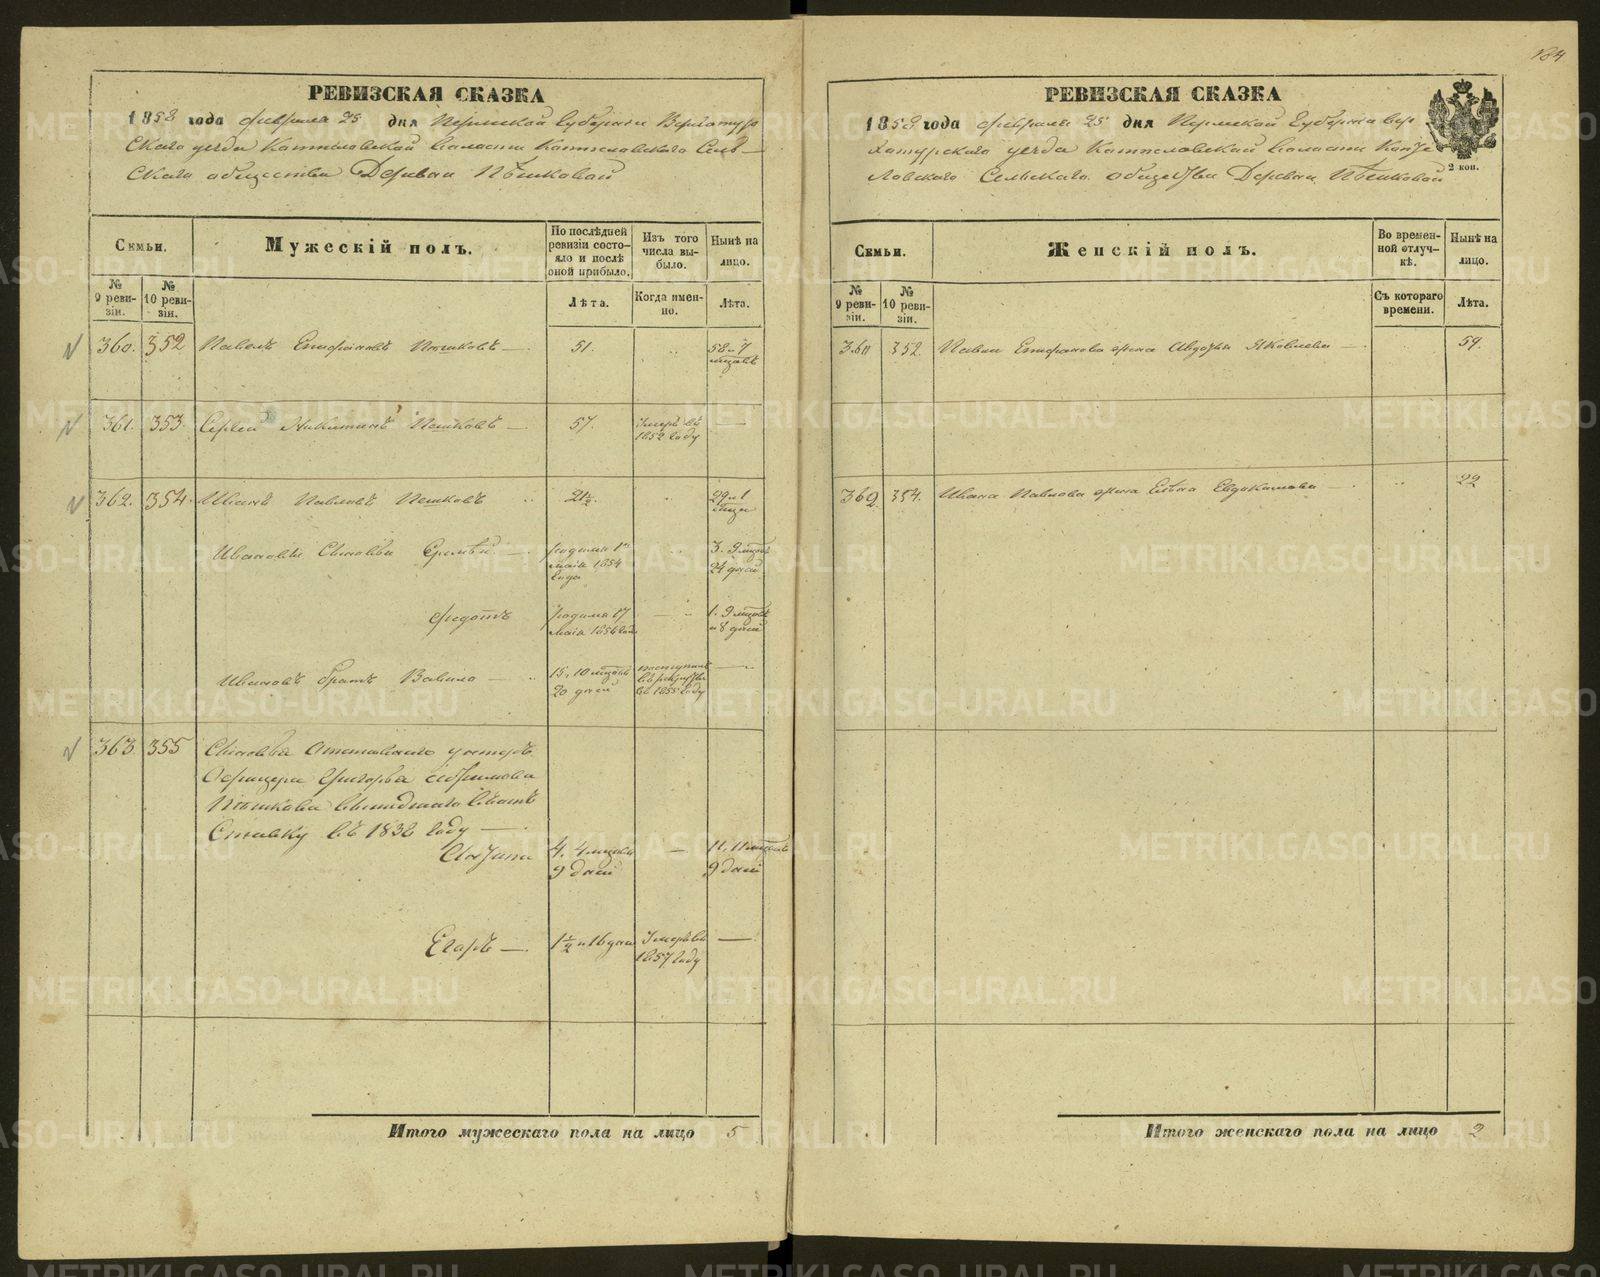 184
РЕВИЗСКАЯ СКАЗКА
1858 года февраля 25 дня Пермской Губернии Верхотур
скаго уезда Коптеловской волости Коптеловскаго Сель
скаго общества Деревни Пѣшковой
Семьи.
Мужескій полъ.
По послѣдней
ревизіи состо-
яло и послѣ
оной прибыло.
Изъ того
числа вы-
было.
Нынѣ на
лицо.
№
9 реви-
зіи.
№
10 реви-
зіи.
Лѣта.
Когда имен-
но.
Лѣта.
360. 352 Павелъ Епифановъ Пѣшковъ 51. 58 и 7
мѣсяцовъ
361. 353. Сергей Никитинъ Пешковъ 57. Умеръ въ
1852 году
362. 354. Иванъ Павловъ Пешковъ 21½. 29 и 1
месяц
Ивановы Сыновья Еремѣй родился 1го
маія 1854
года
3. 9 мцовъ
24 дней
Федотъ родился 17
маія 1856 года
1. 9 мцовъ
и 8 дней
Ивановъ братъ Вавило 15. 10 мцовъ
20 дней
поступилъ
въ рекруты
въ 1855 году
363. 355 Сыновья Отставнаго унтеръ
Офицера Григорья
Пѣшкова вышедшаго въ от
ставку въ 1832 году
4. 4 месяца
9 дней
11. 11 мцовъ
9 дней
Егоръ 1½ и 16 дней Умеръ въ
1857 году
Итого мужескаго пола на лицо 5
РЕВИЗСКАЯ СКАЗКА
1858 года февраля 25 дня Пермской Губернии Вер
хотурского уезда Коптеловской волости Копте
ловскаго Сельскаго общества Деревни Пѣшковой
2 коп.
Семьи.
Женскій полъ.
Во времен-
ной отлуч-
кѣ.
Нынѣ на
лицо.
№
9 реви-
зіи.
№
10 реви-
зіи.
Съ котораго
времени.
Лѣта.
360 352. Павла Епифанова жена Авдотья Яковлева 59.
362 354. Ивана Павлова жена Елена Евдокимова 22
Итого женскаго пола на лицо 2
METRIKI.GASO-URAL.RU